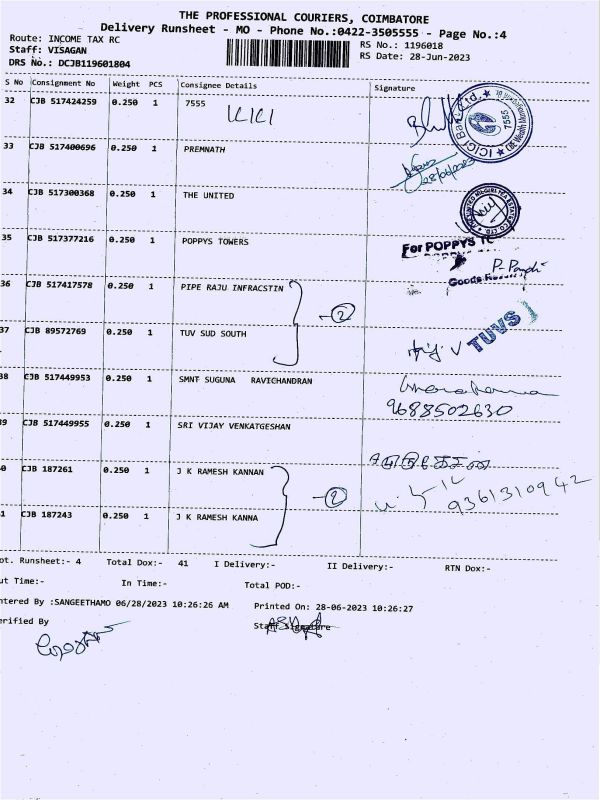 THE PROFESSIONAL COURIERS, COIMBATORE
Delivery Runsheet - MO - Phone No.:0422-3505555 - Page No.:4
Route: INCOME TAX RC RS No.: 1196018
Staff: VISAGAN RS Date: 28-Jun-2023
DRS No.: DCJB119601804
S No Consignment No Weight PCS Consignee Details Signature
32 CJB 517424259 0.250 1 7555
ICICI
33 CJB 517400696 0.250 1 PREMNATH
28/06/2023
34 CJB 517300368 0.250 1 THE UNITED
35 CJB 517377216 0.250 1 POPPYS TOWERS
For POPPYS
P-Pandi
36 CJB 517417578 0.250 1 PIPE RAJU INFRACSTIN
2
37 CJB 89572769 0.250 1 TUV SUD SOUTH
TUVS
38 CJB 517449953 0.250 1 SMNT SUGUNA RAVICHANDRAN
9688502630
39 CJB 517449955 0.250 1 SRI VIJAY VENKATGESHAN
0 CJB 187261 0.250 1 J K RAMESH KANNAN
2
9361310942
1 CJB 187243 0.250 1 J K RAMESH KANNA
ot. Runsheet:- 4 Total Dox:- 41 I Delivery:- II Delivery:- RTN Dox:-
ut Time:- In Time:- Total POD:-
ntered By :SANGEETHAMO 06/28/2023 10:26:26 AM Printed On: 28-06-2023 10:26:27
erified By Staff Signature